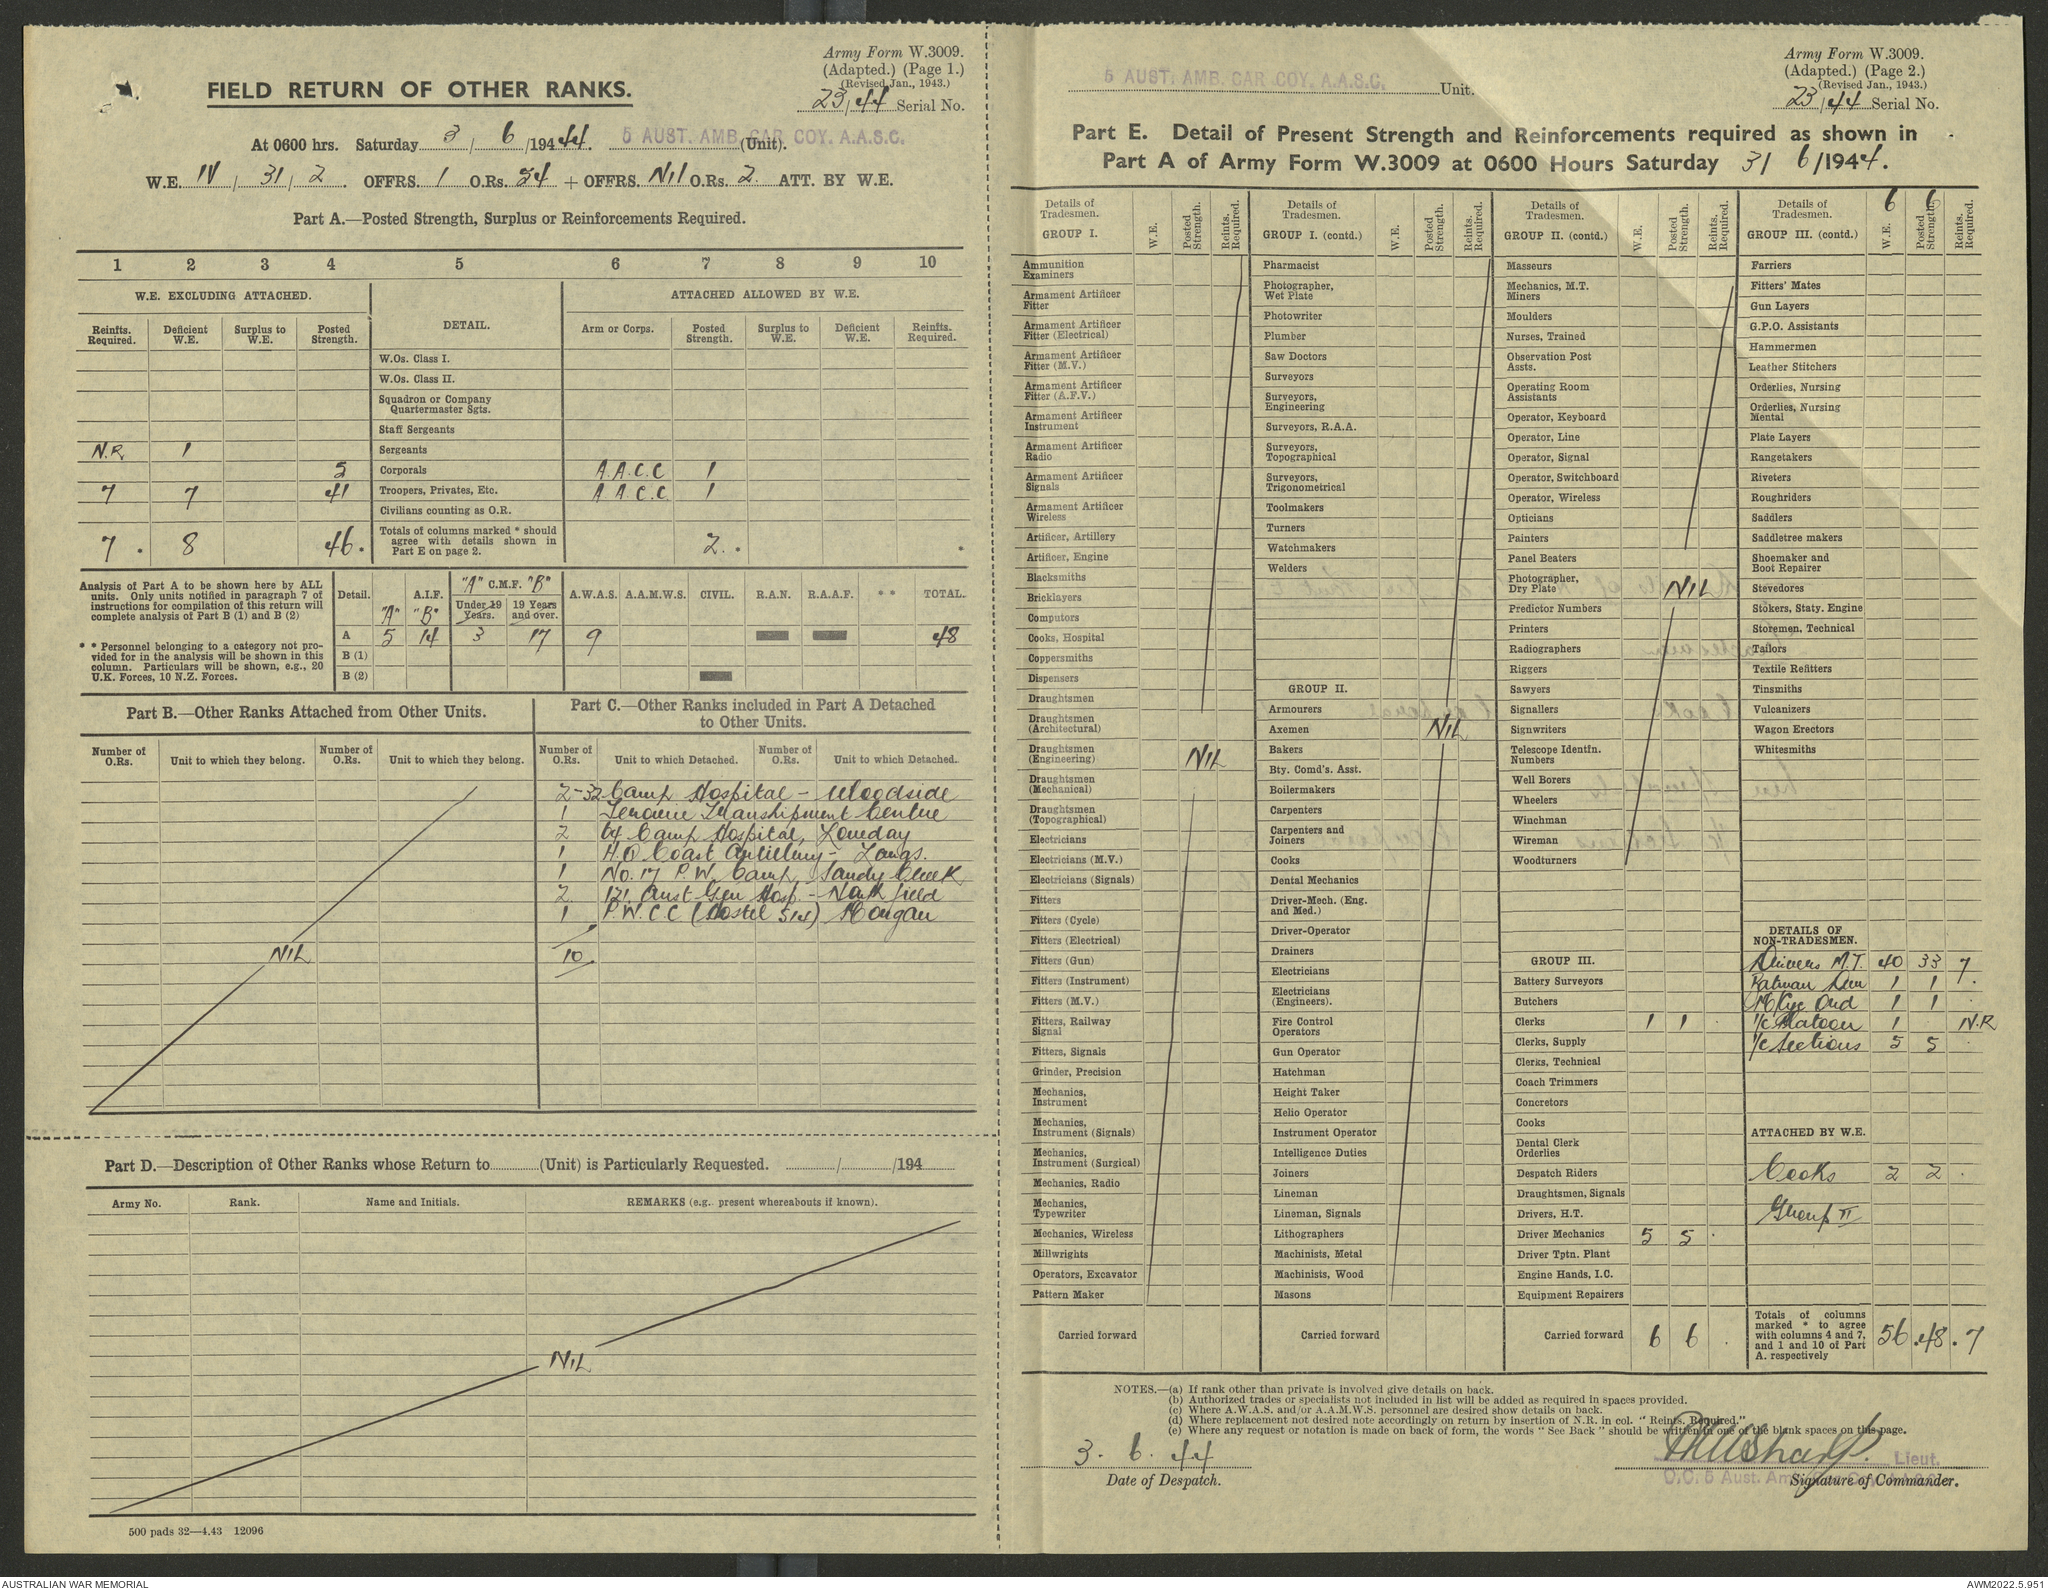 Army Form W.3009.
(Adapted.) (Page 1.)
(Revised Jan., 1943.)
23/44 Serial No.
FIELD RETURN OF OTHER RANKS.
At 0600 hrs. Saturday 3/6/1944. 5 AUST. AMB. CAR COY. A.A.S.C. (Unit).
W.E. IV/31/2. OFFRS. 1 O.Rs. 54 + OFFRS. Nil O.Rs. 2 ATT. BY W.E.
Part A.—Posted Strength, Surplus or Reinforcements Required.
1 2 3 4 5 6 7 8 9 10
W.E. EXCLUDING ATTACHED. DETAIL. ATTACHED ALLOWED BY W.E.
Reinfts. Required. Deficient W.E. Surplus to W.E. Posted Strength. Arm or Corps. Posted Strength. Surplus to W.E. Deficient W.E. Reinfts. Required.
W.Os. Class I.
W.Os. Class II.
Squadron or Company Quartermaster Sgts.
Staff Sergeants
N.R 1 Sergeants
5 Corporals A.A.C.C 1
7 7 41 Troopers, Privates, Etc. A.A.C.C. 1
Civilians counting as O.R.
7 * 8 46 * Totals of columns marked * should agree with details shown in Part E on page 2. 2 * *
Analysis of Part A to be shown here by ALL units. Only units notified in paragraph 7 of instructions for compilation of this return will complete analysis of Part B (1) and B (2)
* * Personnel belonging to a category not provided for in the analysis will be shown in this column. Particulars will be shown, e.g., 20 U.K. Forces, 10 N.Z. Forces.
Detail. A.I.F. "A" "B" "A" C.M.F. "B" Under 19 Years. 19 Years and over. A.W.A.S. A.A.M.W.S. CIVIL. R.A.N. R.A.A.F. * * TOTAL.
A 5 14 3 17 9 48
B (1)
B (2)
Part B.—Other Ranks Attached from Other Units.
Number of O.Rs. Unit to which they belong. Number of O.Rs. Unit to which they belong.
NIL
Part C.—Other Ranks included in Part A Detached to Other Units.
Number of O.Rs. Unit to which Detached. Number of O.Rs. Unit to which Detached.
2 - 32 Camp Hospital - Woodside
1 Terowie Transhipment Centre
2 64 Camp Hospital, Loveday
1 H.Q Coast Artillery - Largs.
1 No. 17 P.W. Camp - Sandy Creek
2 121 Aust Gen Hosp. - Northfield
1 P.W.C.C (Hostel 514) Morgan
10
Part D.—Description of Other Ranks whose Return to (Unit) is Particularly Requested. / /194
Army No. Rank. Name and Initials. REMARKS (e.g. present whereabouts if known).
NIL
500 pads 32—4.43 12096
Army Form W.3009.
(Adapted.) (Page 2.)
(Revised Jan., 1943.)
23/44 Serial No.
5 AUST. AMB. CAR COY. A.A.S.C. Unit.
Part E. Detail of Present Strength and Reinforcements required as shown in
Part A of Army Form W.3009 at 0600 Hours Saturday 3/6/1944.
Details of Tradesmen. GROUP I. W.E. Posted Strength. Reints. Required.
Ammunition Examiners
Armament Artificer Fitter
Armament Artificer Fitter (Electrical)
Armament Artificer Fitter (M.V.)
Armament Artificer Fitter (A.F.V.)
Armament Artificer Instrument
Armament Artificer Radio
Armament Artificer Signals
Armament Artificer Wireless
Artificer, Artillery
Artificer, Engine
Blacksmiths
Bricklayers
Computors
Cooks, Hospital
Coppersmiths
Dispensers
Draughtsmen
Draughtsmen (Architectural)
Draughtsmen (Engineering) NIL
Draughtsmen (Mechanical)
Draughtsmen (Topographical)
Electricians
Electricians (M.V.)
Electricians (Signals)
Fitters
Fitters (Cycle)
Fitters (Electrical)
Fitters (Gun)
Fitters (Instrument)
Fitters (M.V.)
Fitters, Railway Signal
Fitters, Signals
Grinder, Precision
Mechanics, Instrument
Mechanics, Instrument (Signals)
Mechanics, Instrument (Surgical)
Mechanics, Radio
Mechanics, Typewriter
Mechanics, Wireless
Millwrights
Operators, Excavator
Pattern Maker
Carried forward
Details of Tradesmen. GROUP I. (contd.) W.E. Posted Strength. Reints. Required.
Pharmacist
Photographer, Wet Plate
Photowriter
Plumber
Saw Doctors
Surveyors
Surveyors, Engineering
Surveyors, R.A.A.
Surveyors, Topographical
Surveyors, Trigonometrical
Toolmakers
Turners
Watchmakers
Welders
GROUP II.
Armourers
Axemen NIL
Bakers
Bty. Comd's. Asst.
Boilermakers
Carpenters
Carpenters and Joiners
Cooks
Dental Mechanics
Driver-Mech. (Eng. and Med.)
Driver-Operator
Drainers
Electricians
Electricians (Engineers).
Fire Control Operators
Gun Operator
Hatchman
Height Taker
Helio Operator
Instrument Operator
Intelligence Duties
Joiners
Lineman
Lineman, Signals
Lithographers
Machinists, Metal
Machinists, Wood
Masons
Carried forward
Details of Tradesmen. GROUP II. (contd.) W.E. Posted Strength. Reints. Required.
Masseurs
Mechanics, M.T.
Miners
Moulders
Nurses, Trained
Observation Post Assts.
Operating Room Assistants
Operator, Keyboard
Operator, Line
Operator, Signal
Operator, Switchboard
Operator, Wireless
Opticians
Painters
Panel Beaters
Photographer, Dry Plate NIL
Predictor Numbers
Printers
Radiographers
Riggers
Sawyers
Signallers
Signwriters
Telescope Identfn. Numbers
Well Borers
Wheelers
Winchman
Wireman
Woodturners
GROUP III.
Battery Surveyors
Butchers
Clerks 1 1
Clerks, Supply
Clerks, Technical
Coach Trimmers
Concretors
Cooks
Dental Clerk Orderlies
Despatch Riders
Draughtsmen, Signals
Drivers, H.T.
Driver Mechanics 5 5 .
Driver Tptn. Plant
Engine Hands, I.C.
Equipment Repairers
Carried forward 6 6 .
Details of Tradesmen. GROUP III. (contd.) W.E. 6 Posted Strength. 6 Reints. Required.
Farriers
Fitters' Mates
Gun Layers
G.P.O. Assistants
Hammermen
Leather Stitchers
Orderlies, Nursing
Orderlies, Nursing Mental
Plate Layers
Rangetakers
Riveters
Roughriders
Saddlers
Saddletree makers
Shoemaker and Boot Repairer
Stevedores
Stokers, Staty. Engine
Storemen, Technical
Tailors
Textile Refitters
Tinsmiths
Vulcanizers
Wagon Erectors
Whitesmiths
DETAILS OF NON-TRADESMEN.
Drivers M.T. 40 33 7
Batman Dvr 1 1 .
M/Cyc Ord 1 1 .
I/c Platoon 1 N.R
I/c Sections 5 5 .
ATTACHED BY W.E.
Cooks 2 2 .
Group II
Totals of columns marked * to agree with columns 4 and 7, and 1 and 10 of Part A. respectively 56 *48 * 7
NOTES.—(a) If rank other than private is involved give details on back.
(b) Authorized trades or specialists not included in list will be added as required in spaces provided.
(c) Where A.W.A.S. and/or A.A.M.W.S. personnel are desired show details on back.
(d) Where replacement not desired note accordingly on return by insertion of N.R. in col. "Reints. Required."
(e) Where any request or notation is made on back of form, the words "See Back" should be written in one of the blank spaces on this page.
3. 6. 44
Date of Despatch.
Lieut.
O.C. 5 Aust. Amb. Car Coy. A.A.S.C.
Signature of Commander.
AUSTRALIAN WAR MEMORIAL
AWM2022.5.951